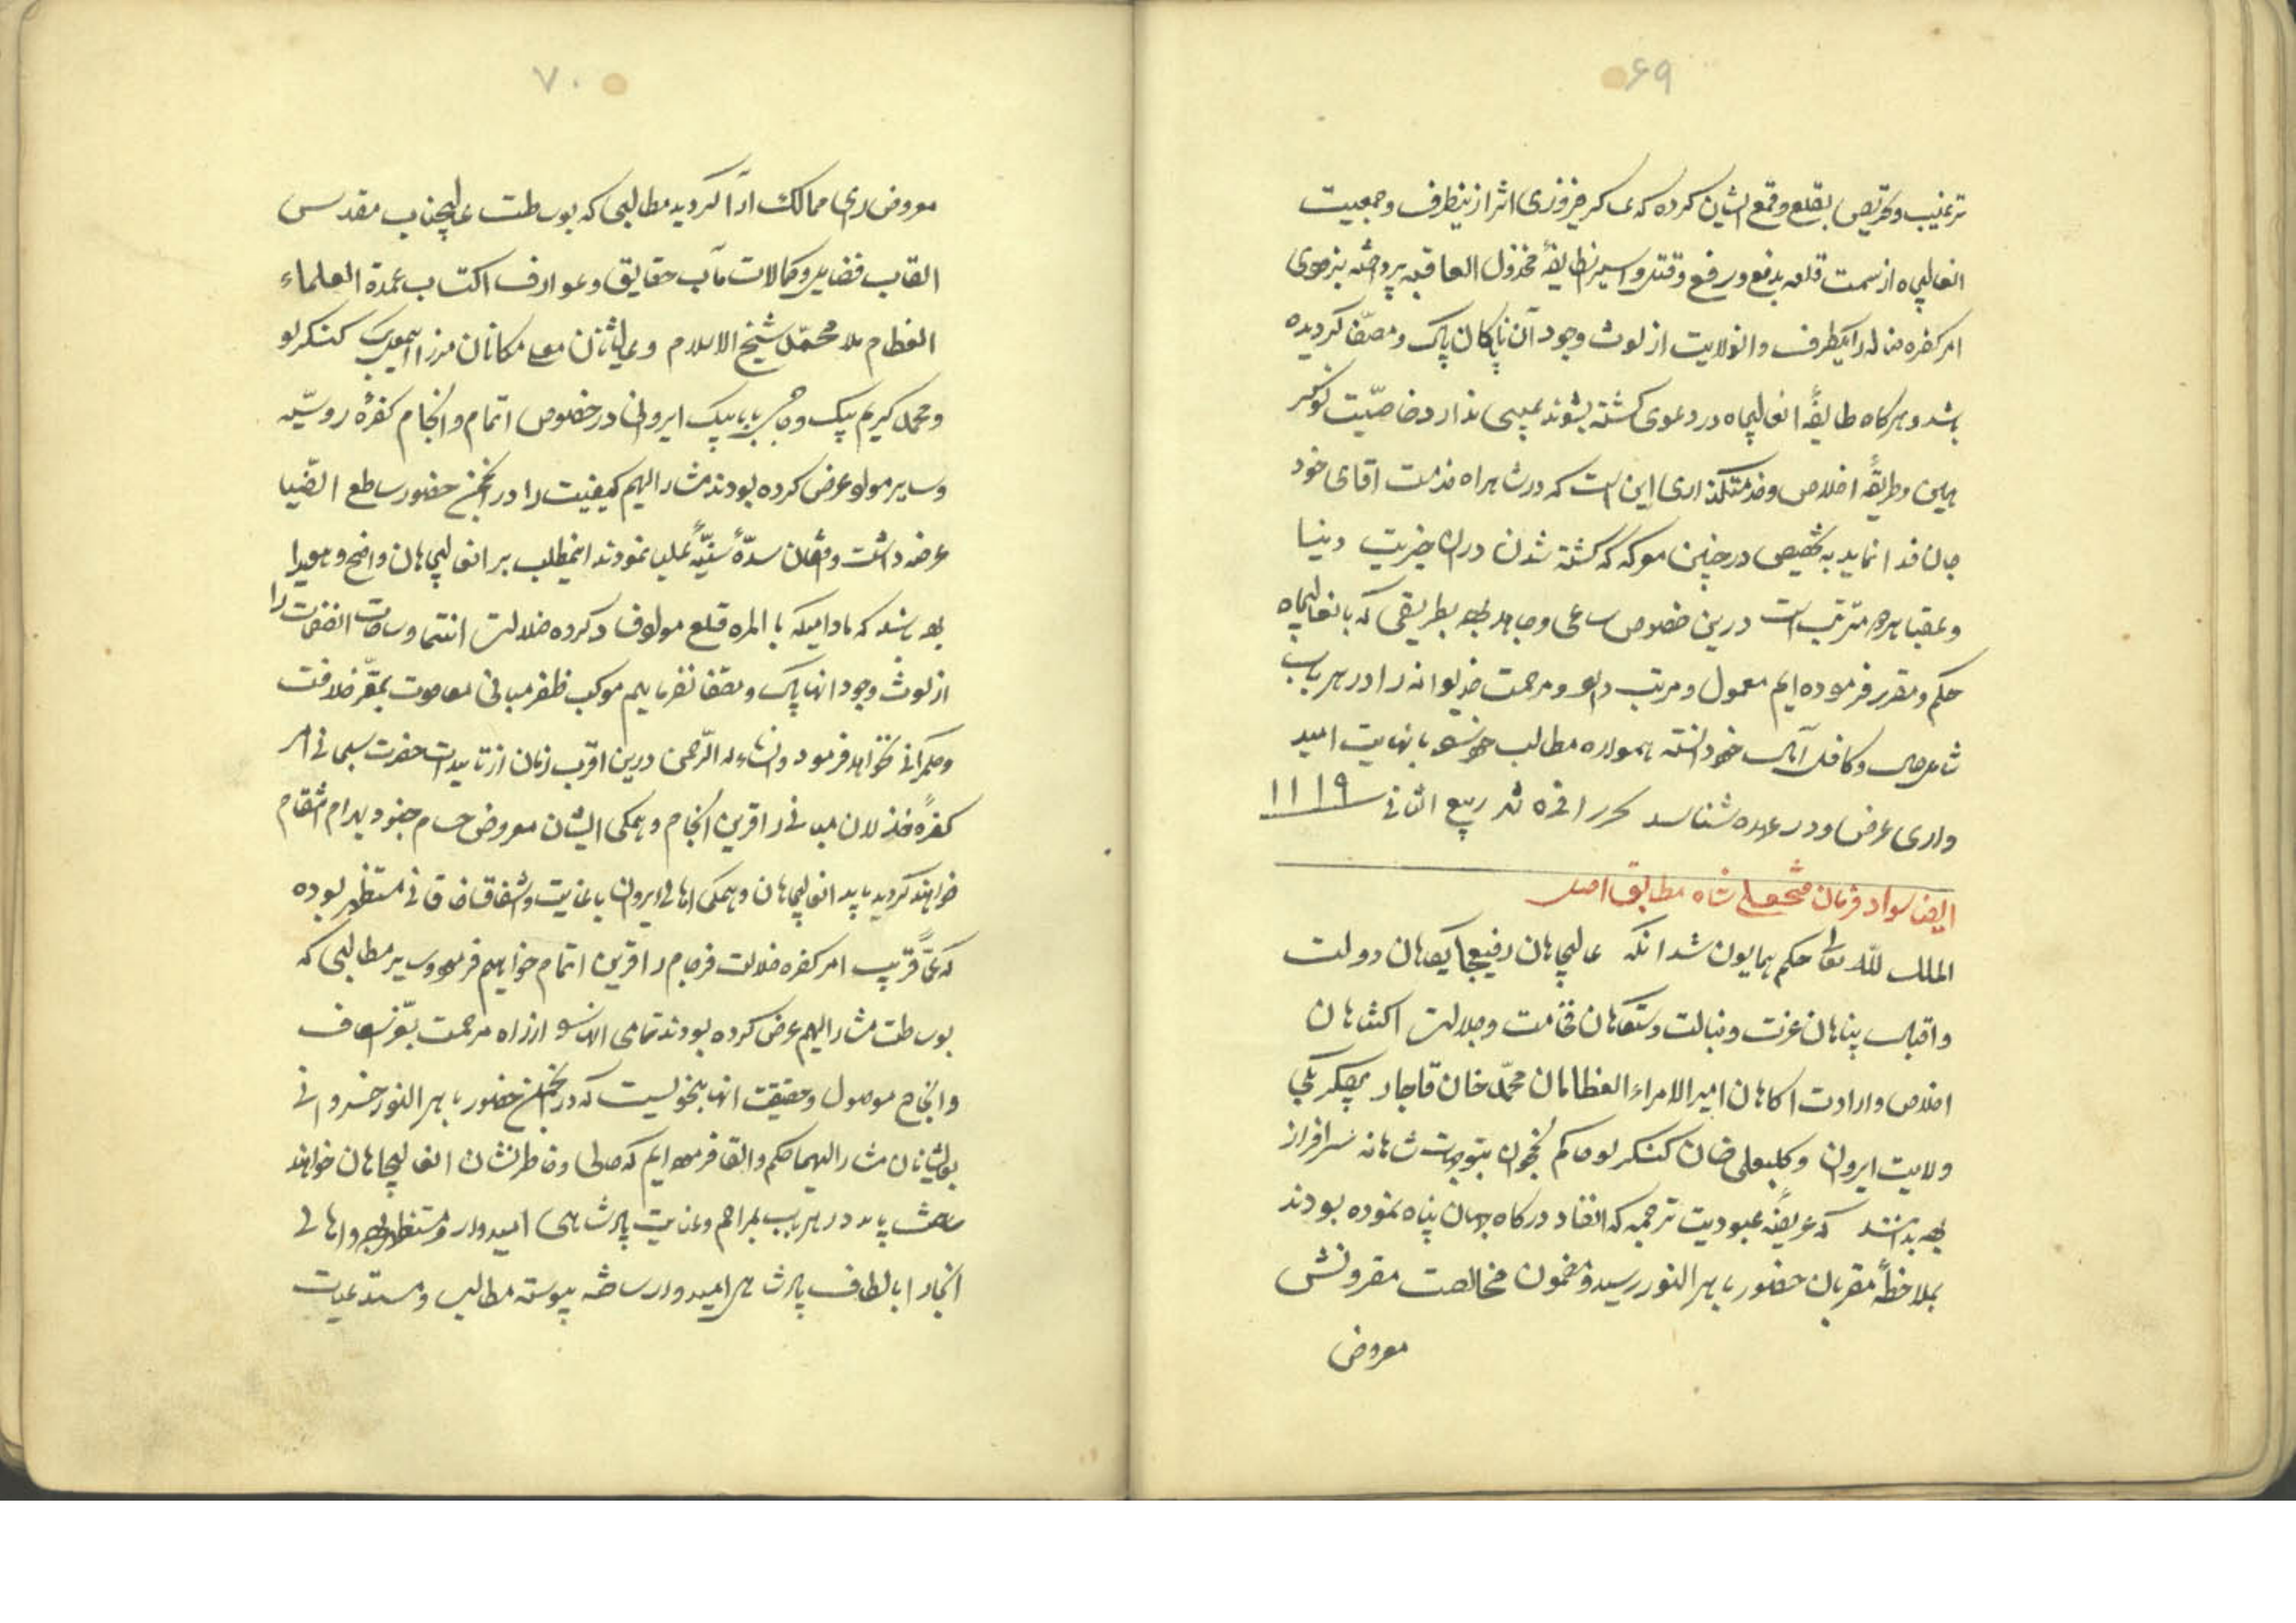 ۶۹
ترغیب و تحریص بقلع و قمع ایشان کرده که عساکر فیروزی اثر ازینطرف و جمعیت
انعالیجاه از سمت قلعه بدفع و رفع و قتل و اسیر انطایفهٔ مخذول العاقبه پرداخته بزودی
امر کفره ضاله را یکطرف و انولایت از لوث وجود آن ناپاکان پاک و مصفّا کردیده
باشد و هرکاه طایفهٔ انعالیجاه در دعوی کشته بشوند عیبی ندارد خاصیّت نوکر
همین و طریقهٔ اخلاص و خدمتکذاری این است که در شاهراه خدمت اقای خود
جان فدا نماید به تخصیص در چنین معرکه که کشته شدن دران خیریت دنیا
و عقبا بهره مترتب است درین خصوص ساعی و جاهد بوده بطریقی که بانعالیجاه
حکم و مقرر فرموده ایم معمول و مرتب داشته و مرحمت خدیوانه را در هر باب
شامل حال و کافل آمال خود دانسته همواره مطالب خود را با نهایت امید
واری عرض و در عهده شناسد تحریرا فی شهر ربیع الثانی ۱۱۱۹
ایضا سواد فرمان فتحعلی شاه مطابق اصل
الملک للّه تعالی حکم همایون شد آنکه عالیجاهان رفیع جایکاهان دولت
و اقبال پناهان عزت و نبالت دستکاهان فخامت و جلالت اکتناهان
اخلاص و ارادت اکاهان امیر الامراء العظامان محمّد خان قاجار بیکلربیکی
ولایت ایروان و کلبعلی خان کنکرلو حاکم نخجوان بتوجهات شاهانه سرافراز
بوده بدانند که عریضهٔ عبودیت ترجمه که انفاد درکاه جهان پناه نموده بودند
بملاحظهٔ مقربان حضور باهر النور رسید و مضمون مخالصت مقرونش
معروض
۷۰
معروض رای ممالک آرا کردید مطالبی که بوساطت عالیجناب مقدس
القاب فضایل و کمالات مآب حقایق و عوارف اکتساب عمدة العلماء
العظام ملا محمّد شیخ الاسلام و عالیشانان معلی مکانان میرزا اسمعیل بیک کنکرلو
و محمد کریم بیک و حاجی بابا بیک ایروانی در خصوص اتمام و انجام کفرهٔ روسیّه
و سایر مواد عرض کرده بودند مشار الیهم کیفیت را در انجمن حضور ساطع الضّیا
عرضه داشت واقفان سدّهٔ سنیّهٔ علیا نمودند اینمطلب بر انعالیجاهان واضح و هویدا
بوده باشد که مادامیکه بالمره قلع مواد فساد کرده ضلالت انتما و ساحات انصفحات را
از لوث وجود انها پاک و مصفا نفرماییم موکب ظفر مبانی معاودت بمقرّ خلافت
و حکمرانی نخواهد فرمود و انشاءالله الرّحمن درین اقرب زمان از تاییدات حضرت سبحانی امر
کفرهٔ خذلان مبانی را قرین انجام و همکی ایشان معروض حسام جنود بهرام انتقام
خواهند کردید باید انعالیجاهان و همکی اهالی ایروان با عنایت و اشفاق خاقانی مستظهر بوده
که عمّا قریب امر کفره ضلالت فرجام را قرین اتمام خواهیم فرمود و سایر مطالبی که
بوساطت مشار الیهم عرض کرده بودند تمامی انها از راه مرحمت بعزّ اسعاف
و انجاح موصول و حقیقت انها بنحویست که در انجمن حضور باهر النور خسروانی
بعالیشانان مشار الیهما حکم و القا فرموده ایم که حالی و خاطرنشان انعالیجاهان خواهند
ساخت باید در هر باب بمراحم و عنایت پادشاهی امیدوار و مستظهر بوده و اهالی
انجا را بالطاف پادشاهی امیدوار ساخته پیوسته مطالب و مستدعیات